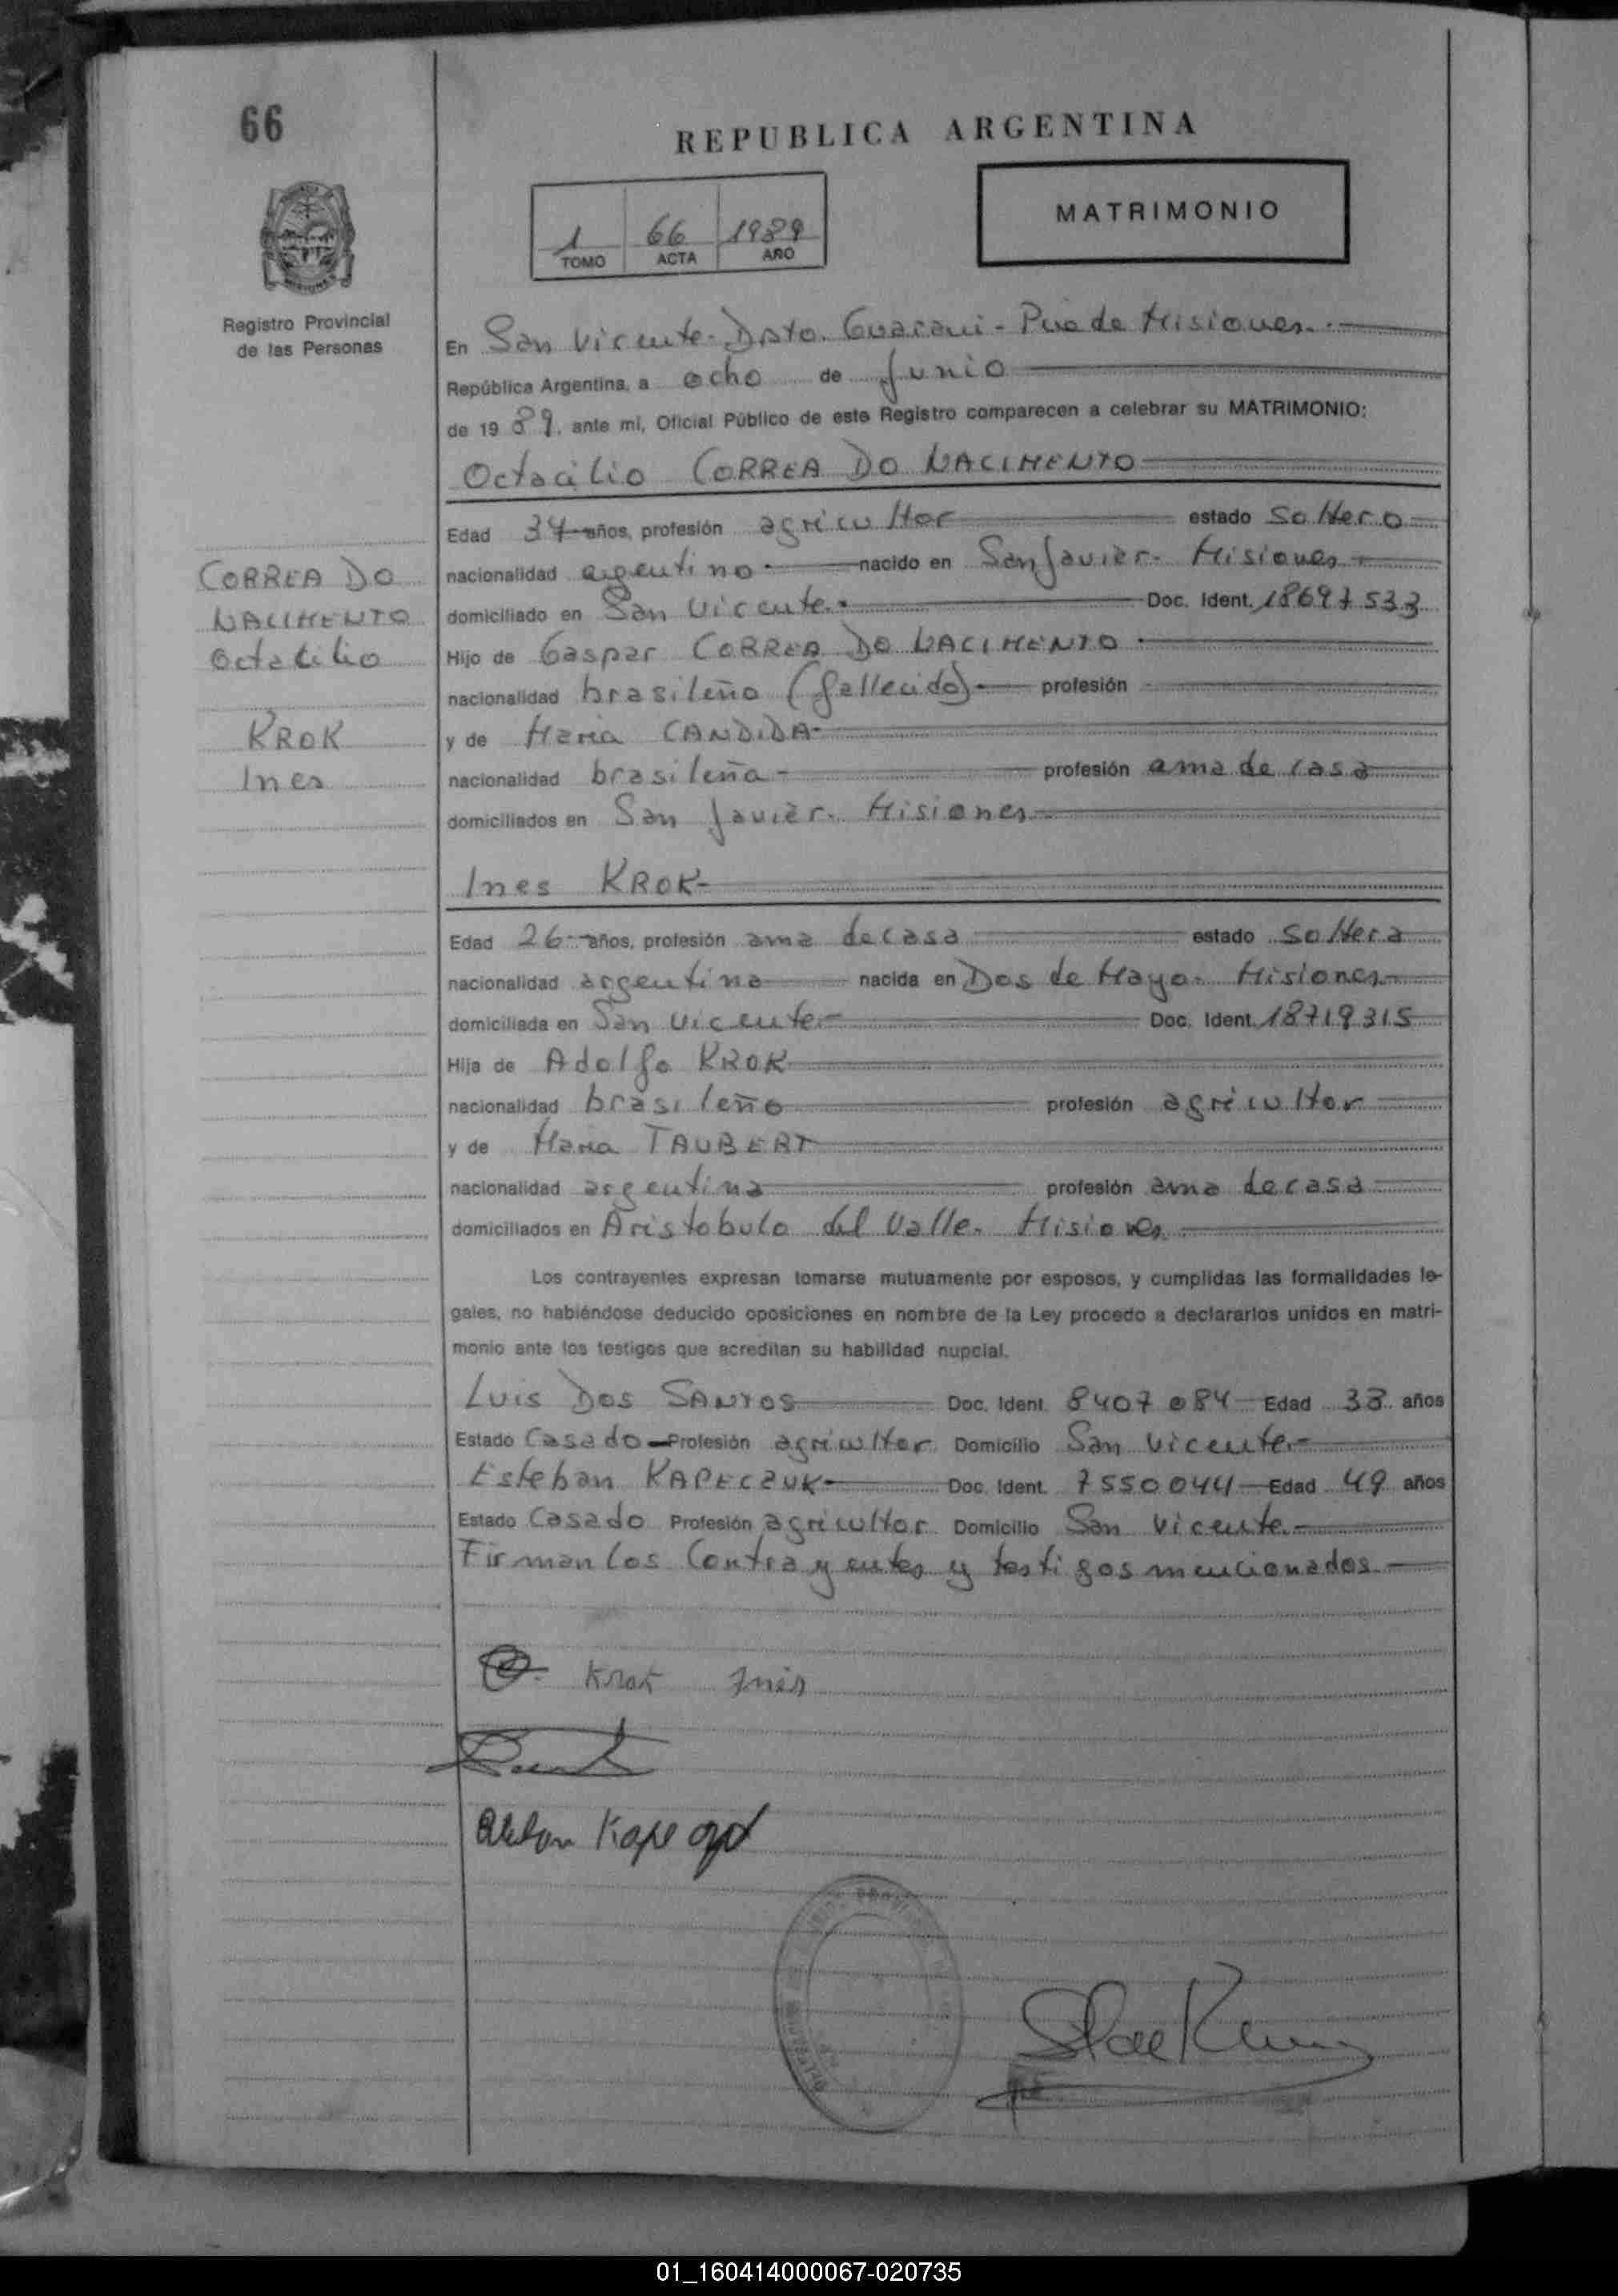 66
REPUBLICA ARGENTINA
MATRIMONIO
1 66 1989
TOMO ACTA AÑO
Registro Provincial
de las Personas
En San Vicente - Dpto. Guaraní - Pcia de Misiones.
República Argentina, a ocho de Junio
de 19 89, ante mi, Oficial Público de este Registro comparecen a celebrar su MATRIMONIO:
Octacilio CORREA DO NACIMENTO
Edad 34 años, profesión agricultor estado soltero
nacionalidad argentino nacido en San Javier - Misiones
domiciliado en San Vicente. Doc. Ident. 18697533
Hijo de Gaspar CORREA DO NACIMENTO
nacionalidad brasileño (fallecido) profesión
y de Maria CANDIDA
nacionalidad brasileña profesión ama de casa
domiciliados en San Javier - Misiones
CORREA DO
NACIMENTO
Octacilio
KROK
Ines
Ines KROK
Edad 26 años, profesión ama de casa estado soltera
nacionalidad argentina nacida en Dos de Mayo - Misiones
domiciliada en San Vicente Doc. Ident. 18719315
Hija de Adolfo KROK
nacionalidad brasileño profesión agricultor
y de Maria TAUBERT
nacionalidad argentina profesión ama de casa
domiciliados en Aristobulo del Valle - Misiones
Los contrayentes expresan tomarse mutuamente por esposos, y cumplidas las formalidades le-
gales, no habiéndose deducido oposiciones en nombre de la Ley procedo a declararlos unidos en matri-
monio ante los testigos que acreditan su habilidad nupcial.
Luis Dos SANTOS Doc. Ident. 8407084 Edad 38 años
Estado Casado Profesión agricultor Domicilio San Vicente
Esteban KAPECZUK Doc. Ident. 7550044 Edad 49 años
Estado Casado Profesión agricultor Domicilio San Vicente
Firman los Contrayentes y testigos mencionados
Krok Inés
01_160414000067-020735